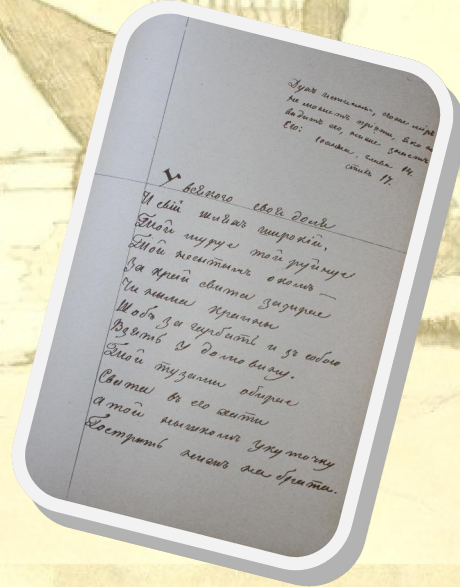 Духъ истины, его же міръ
не можетъ пріяти, яко н
видитъ его, ниже знаетъ
Его: Іоанна, глава 14.
стихъ 17.
У всякого своя доля
И свій шляхъ широкій.
Той мурує той руйнує
Той неситымъ окомъ
За край свита зазирае
Чи нема країны
Щобъ загарбать и зъ собою
Взять у домовину.
Той тузами обирае
Свата въ его хати
А той нышкомъ у куточку
Гострить нижъ на брата.